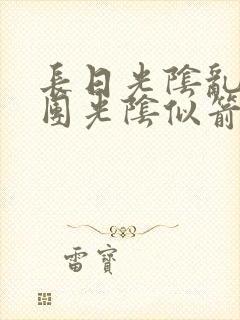 長日光陰亂
團光陰似箭
雷寶